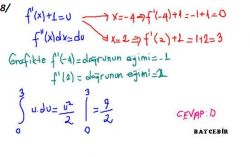 8/
f'(x)+1=u
x=-4→f'(-4)+1=-1+1=0
f''(x)dx=du
x=2→f'(2)+1=1+2=3
Grafikte f'(-4)=doğrunun eğimi=-1
f'(2)=doğrunun eğimi=2
3
∫ u.du=u²/2 | =9/2
0
3
0
CEVAP:D
BAYÇEBİR